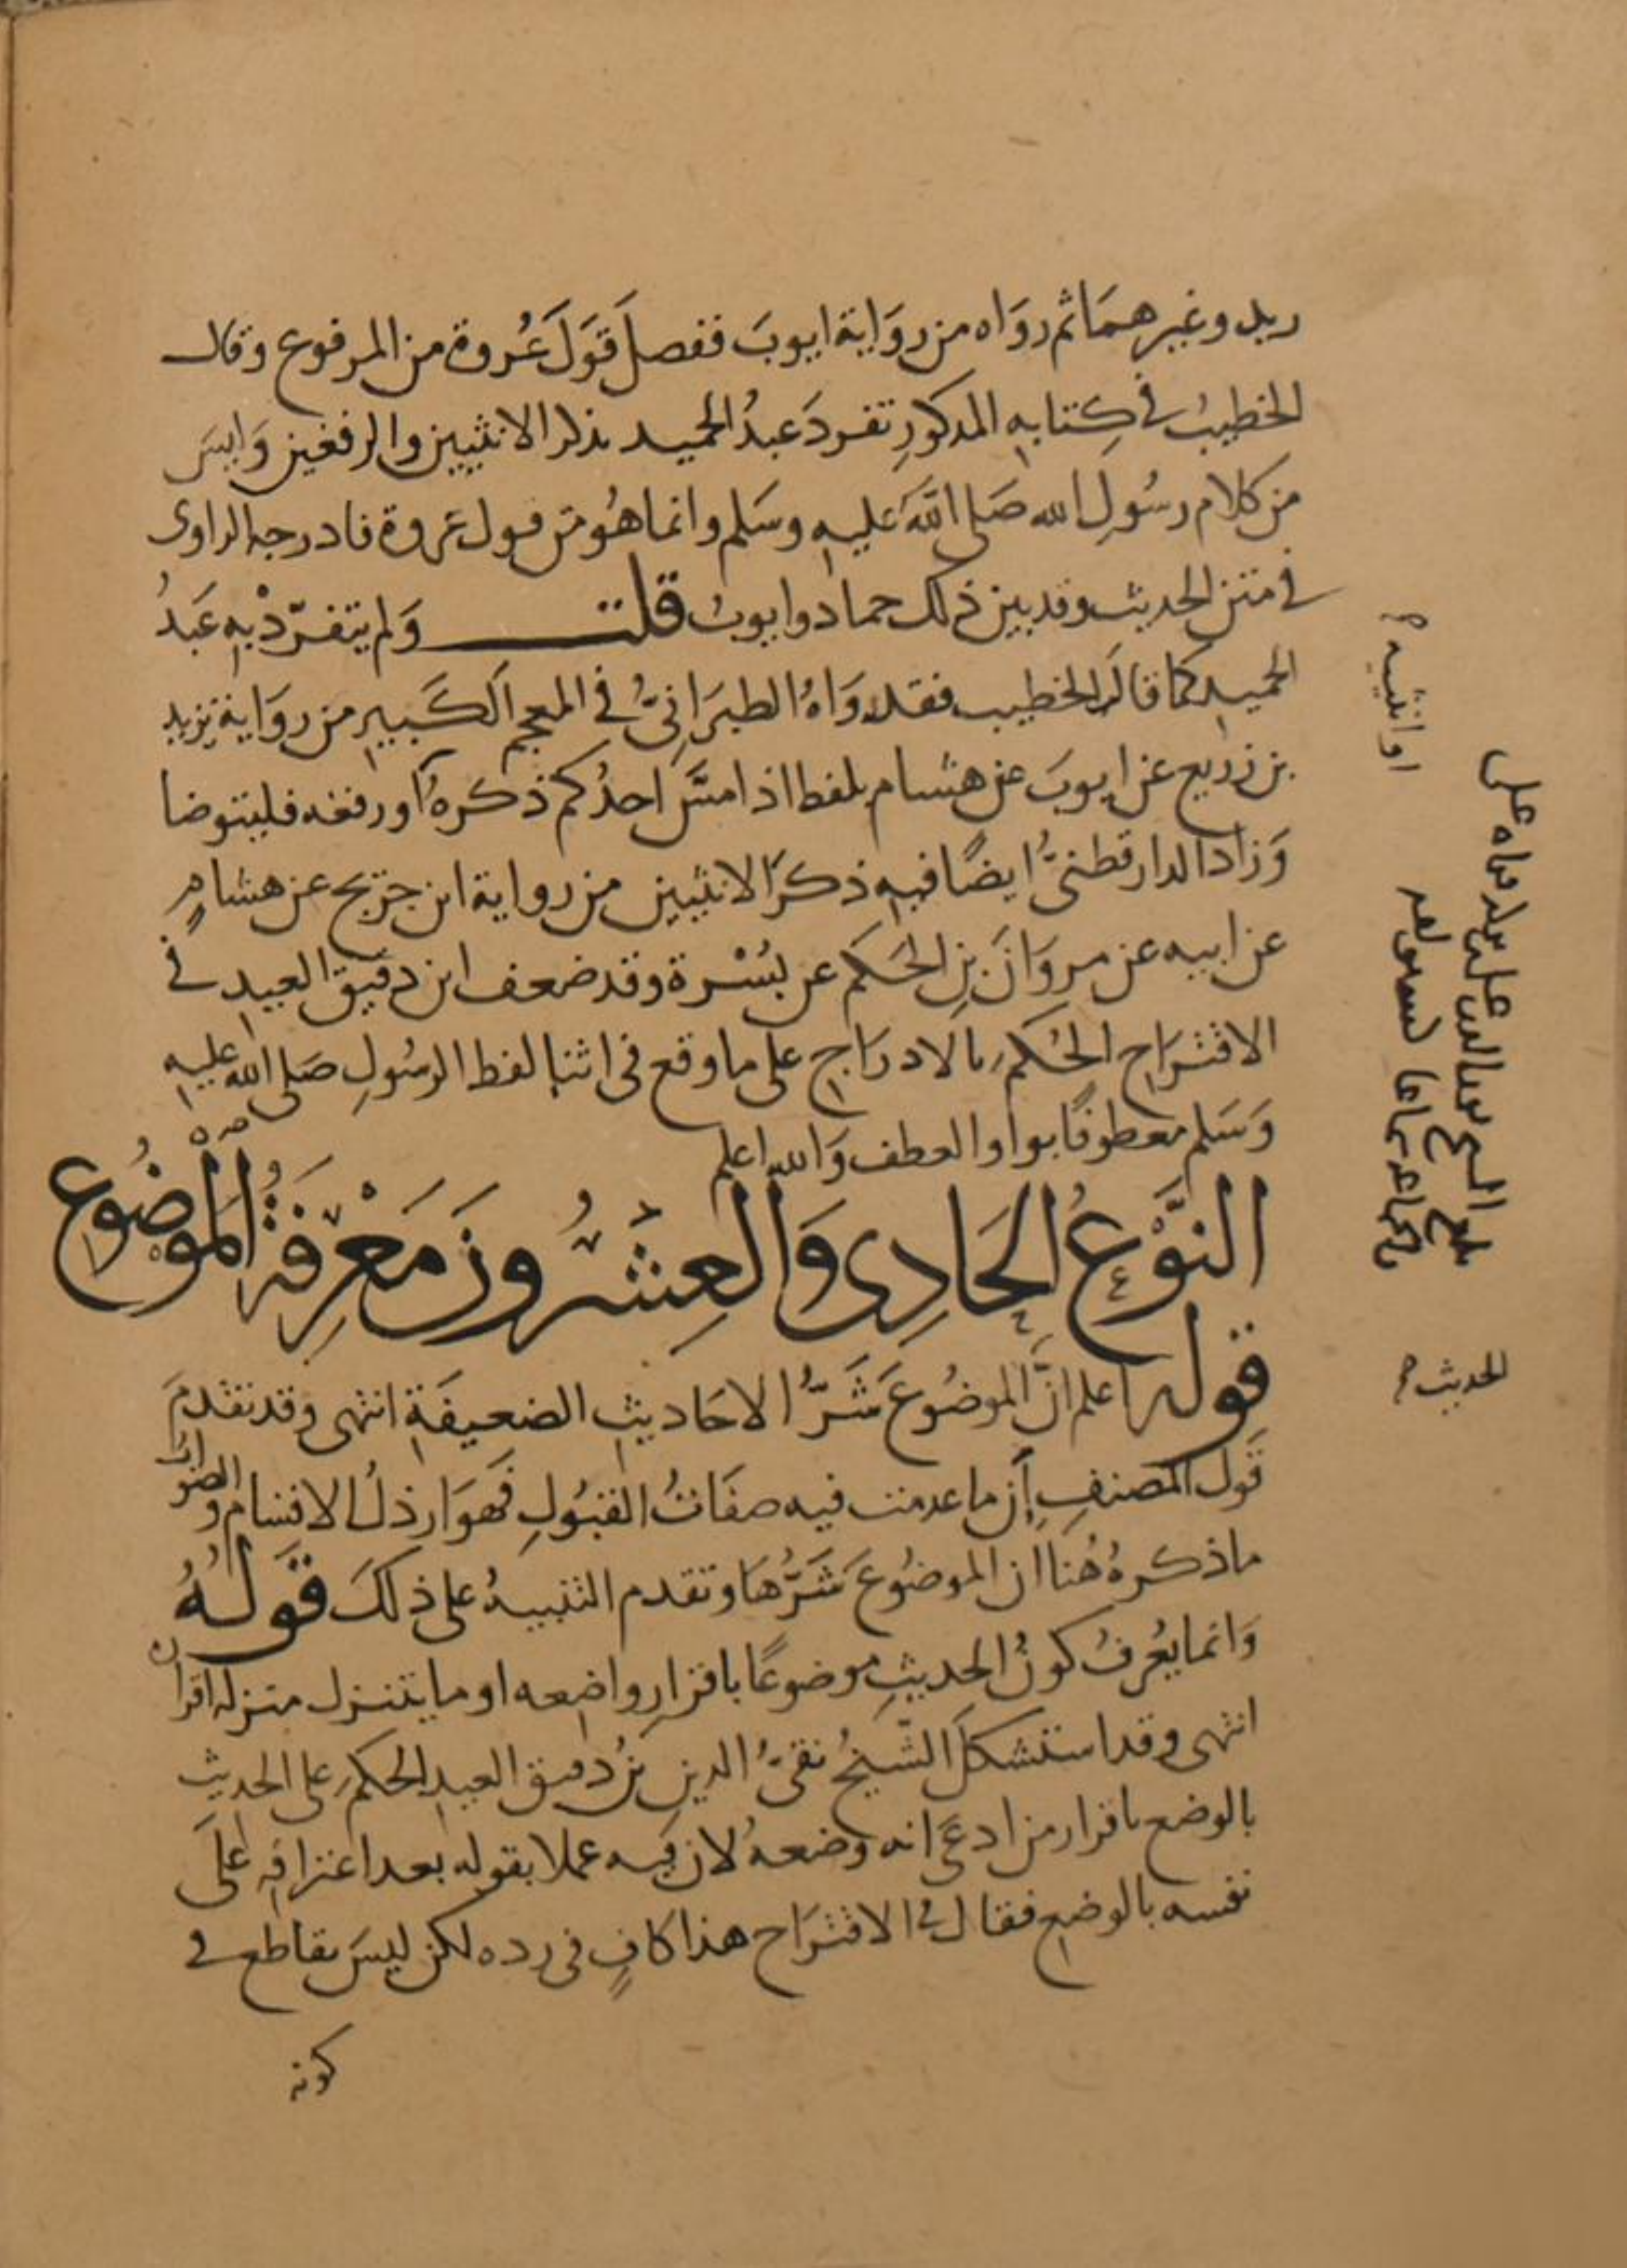 ريد وغيرهما ثم رواه من رواية ايوب ففصل قول عروة من المرفوع وقال
الخطيب في كتابه المذكور تفرد عبد الحميد بذكر الانثيين والرفغين وليس
من كلام رسول الله صلى الله عليه وسلم وانما هو من قول عروة فادرجه الراوى
في متن الحديث وقد بين ذلك حماد وايوب قلت ولم يتفرد به عبد
الحميد كما قال الخطيب فقد رواه الطبراني في المعجم الكبير من رواية يزيد
بن زريع عن ايوب عن هشام بلفظ اذا مس احدكم ذكره او رفغه فليتوضا
وزاد الدارقطني ايضا فيه ذكر الانثيين من رواية ابن جريج عن هشام
عن ابيه عن مروان بن الحكم عن بسرة وقد ضعف ابن دقيق العيد في
الاقتراح الحكم بالادراج على ما وقع في اثنا لفظ الرسول صلى الله عليه
وسلم معطوفا بواو العطف والله اعلم
النوع الحادي والعشرون معرفة الموضوع
قوله اعلم ان الموضوع شر الاحاديث الضعيفة انتهى وقد تقدم
قول المصنف ان ما عدمت فيه صفات القبول فهو ارذل الاقسام والصواب
ما ذكره هنا ان الموضوع شرها وتقدم التنبيه على ذلك قوله
وانما يعرف كون الحديث موضوعا باقرار واضعه او ما يتنزل منزلة اقراره
انتهى وقد استشكل الشيخ تقي الدين بن دقيق العيد الحكم على الحديث
بالوضع باقرار من ادعى انه وضعه لان فيه عملا بقوله بعد اعترافه على
نفسه بالوضع فقال في الاقتراح هذا كاف في رده لكن ليس بقاطع في
كونه
او انثييه
الحديث